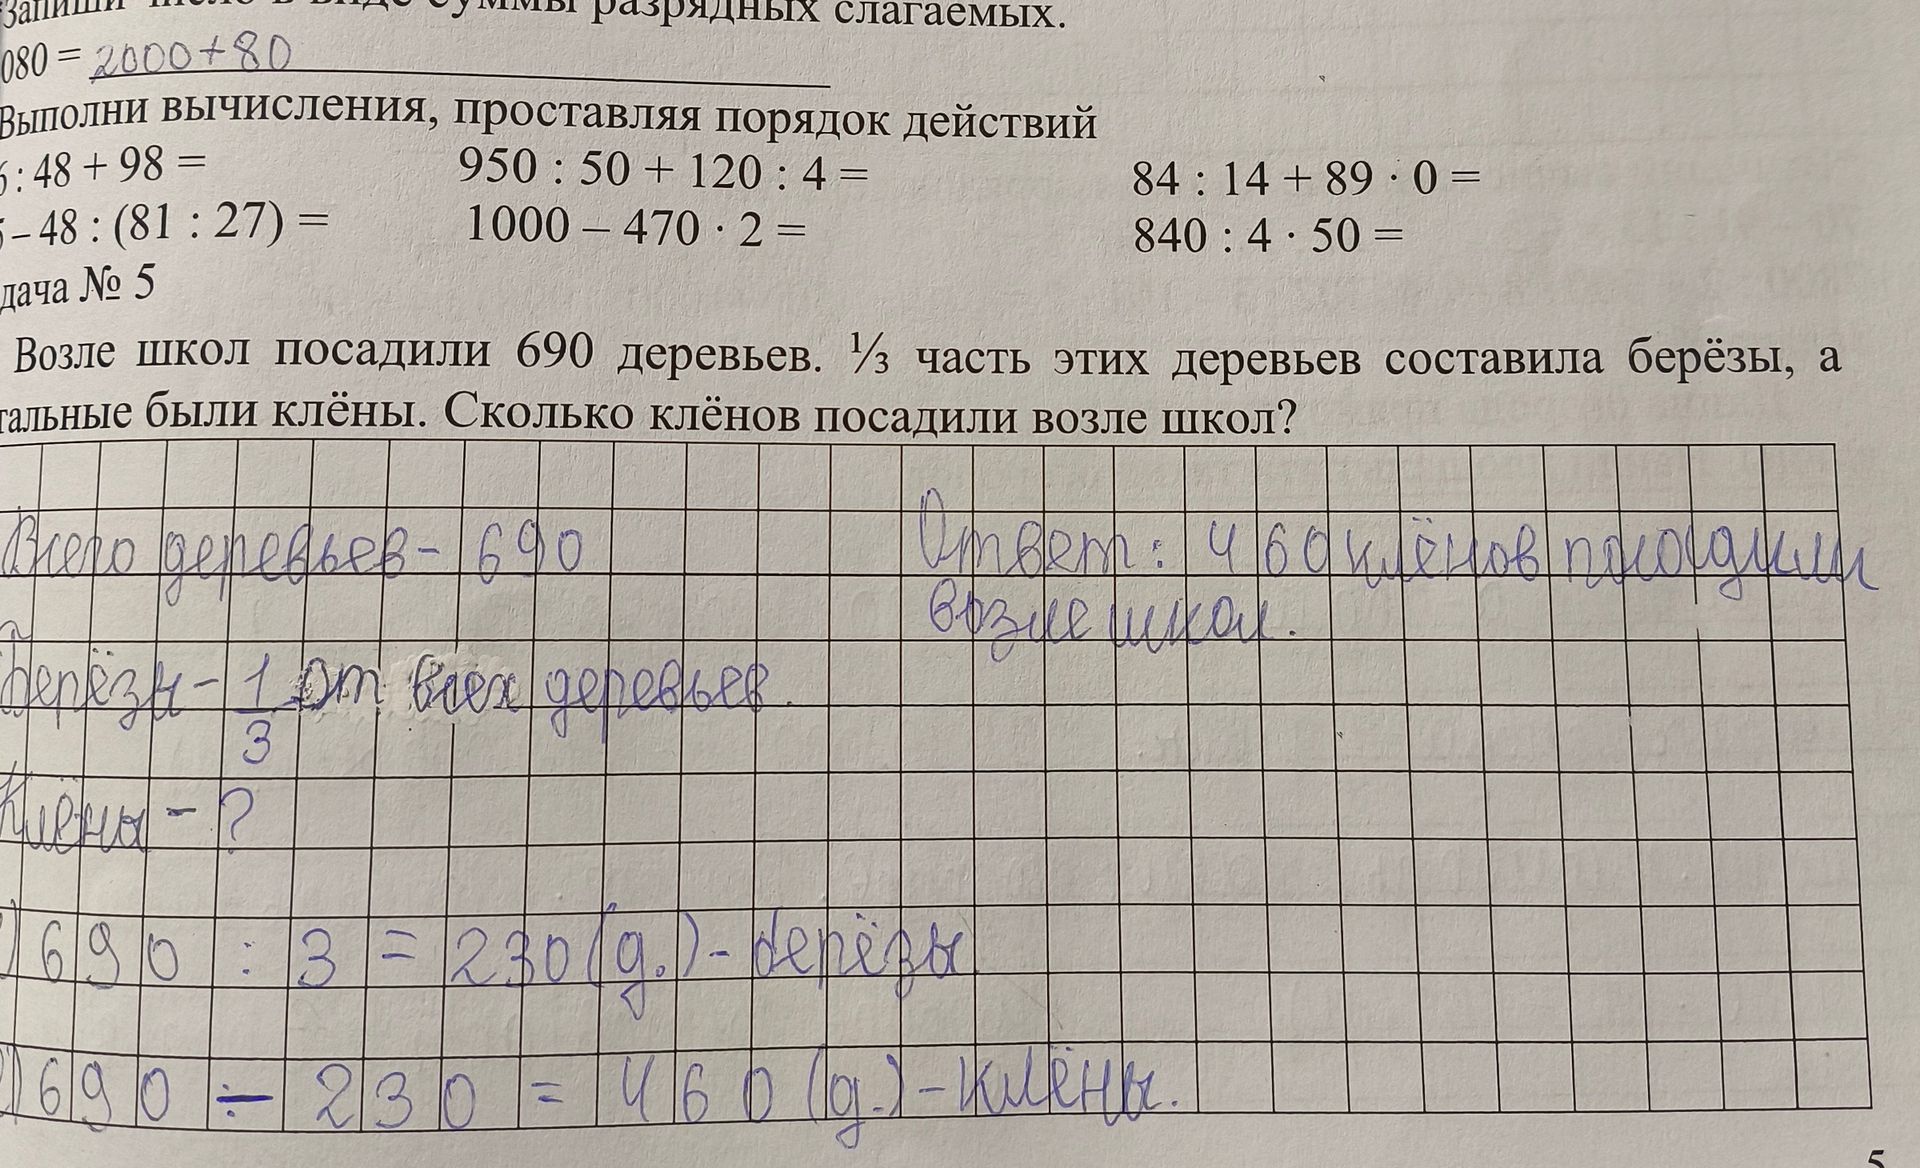 Запиши число в виде суммы разрядных слагаемых.
080 = 2000+80
Выполни вычисления, проставляя порядок действий
6 : 48 + 98 = 950 : 50 + 120 : 4 = 84 : 14 + 89 · 0 =
– 48 : (81 : 27) = 1000 – 470 · 2 = 840 : 4 · 50 =
дача № 5
Возле школ посадили 690 деревьев. ⅓ часть этих деревьев составила берёзы, а
тальные были клёны. Сколько клёнов посадили возле школ?
Всего деревьев- 690
Берёзы- 1/3 от всех деревьев.
Клёны - ?
) 690 : 3 = 230 (д.)- берёзы
) 690 ÷ 230 = 460 (д.)-клёны.
Ответ: 460 клёнов посадили
возле школ.
5